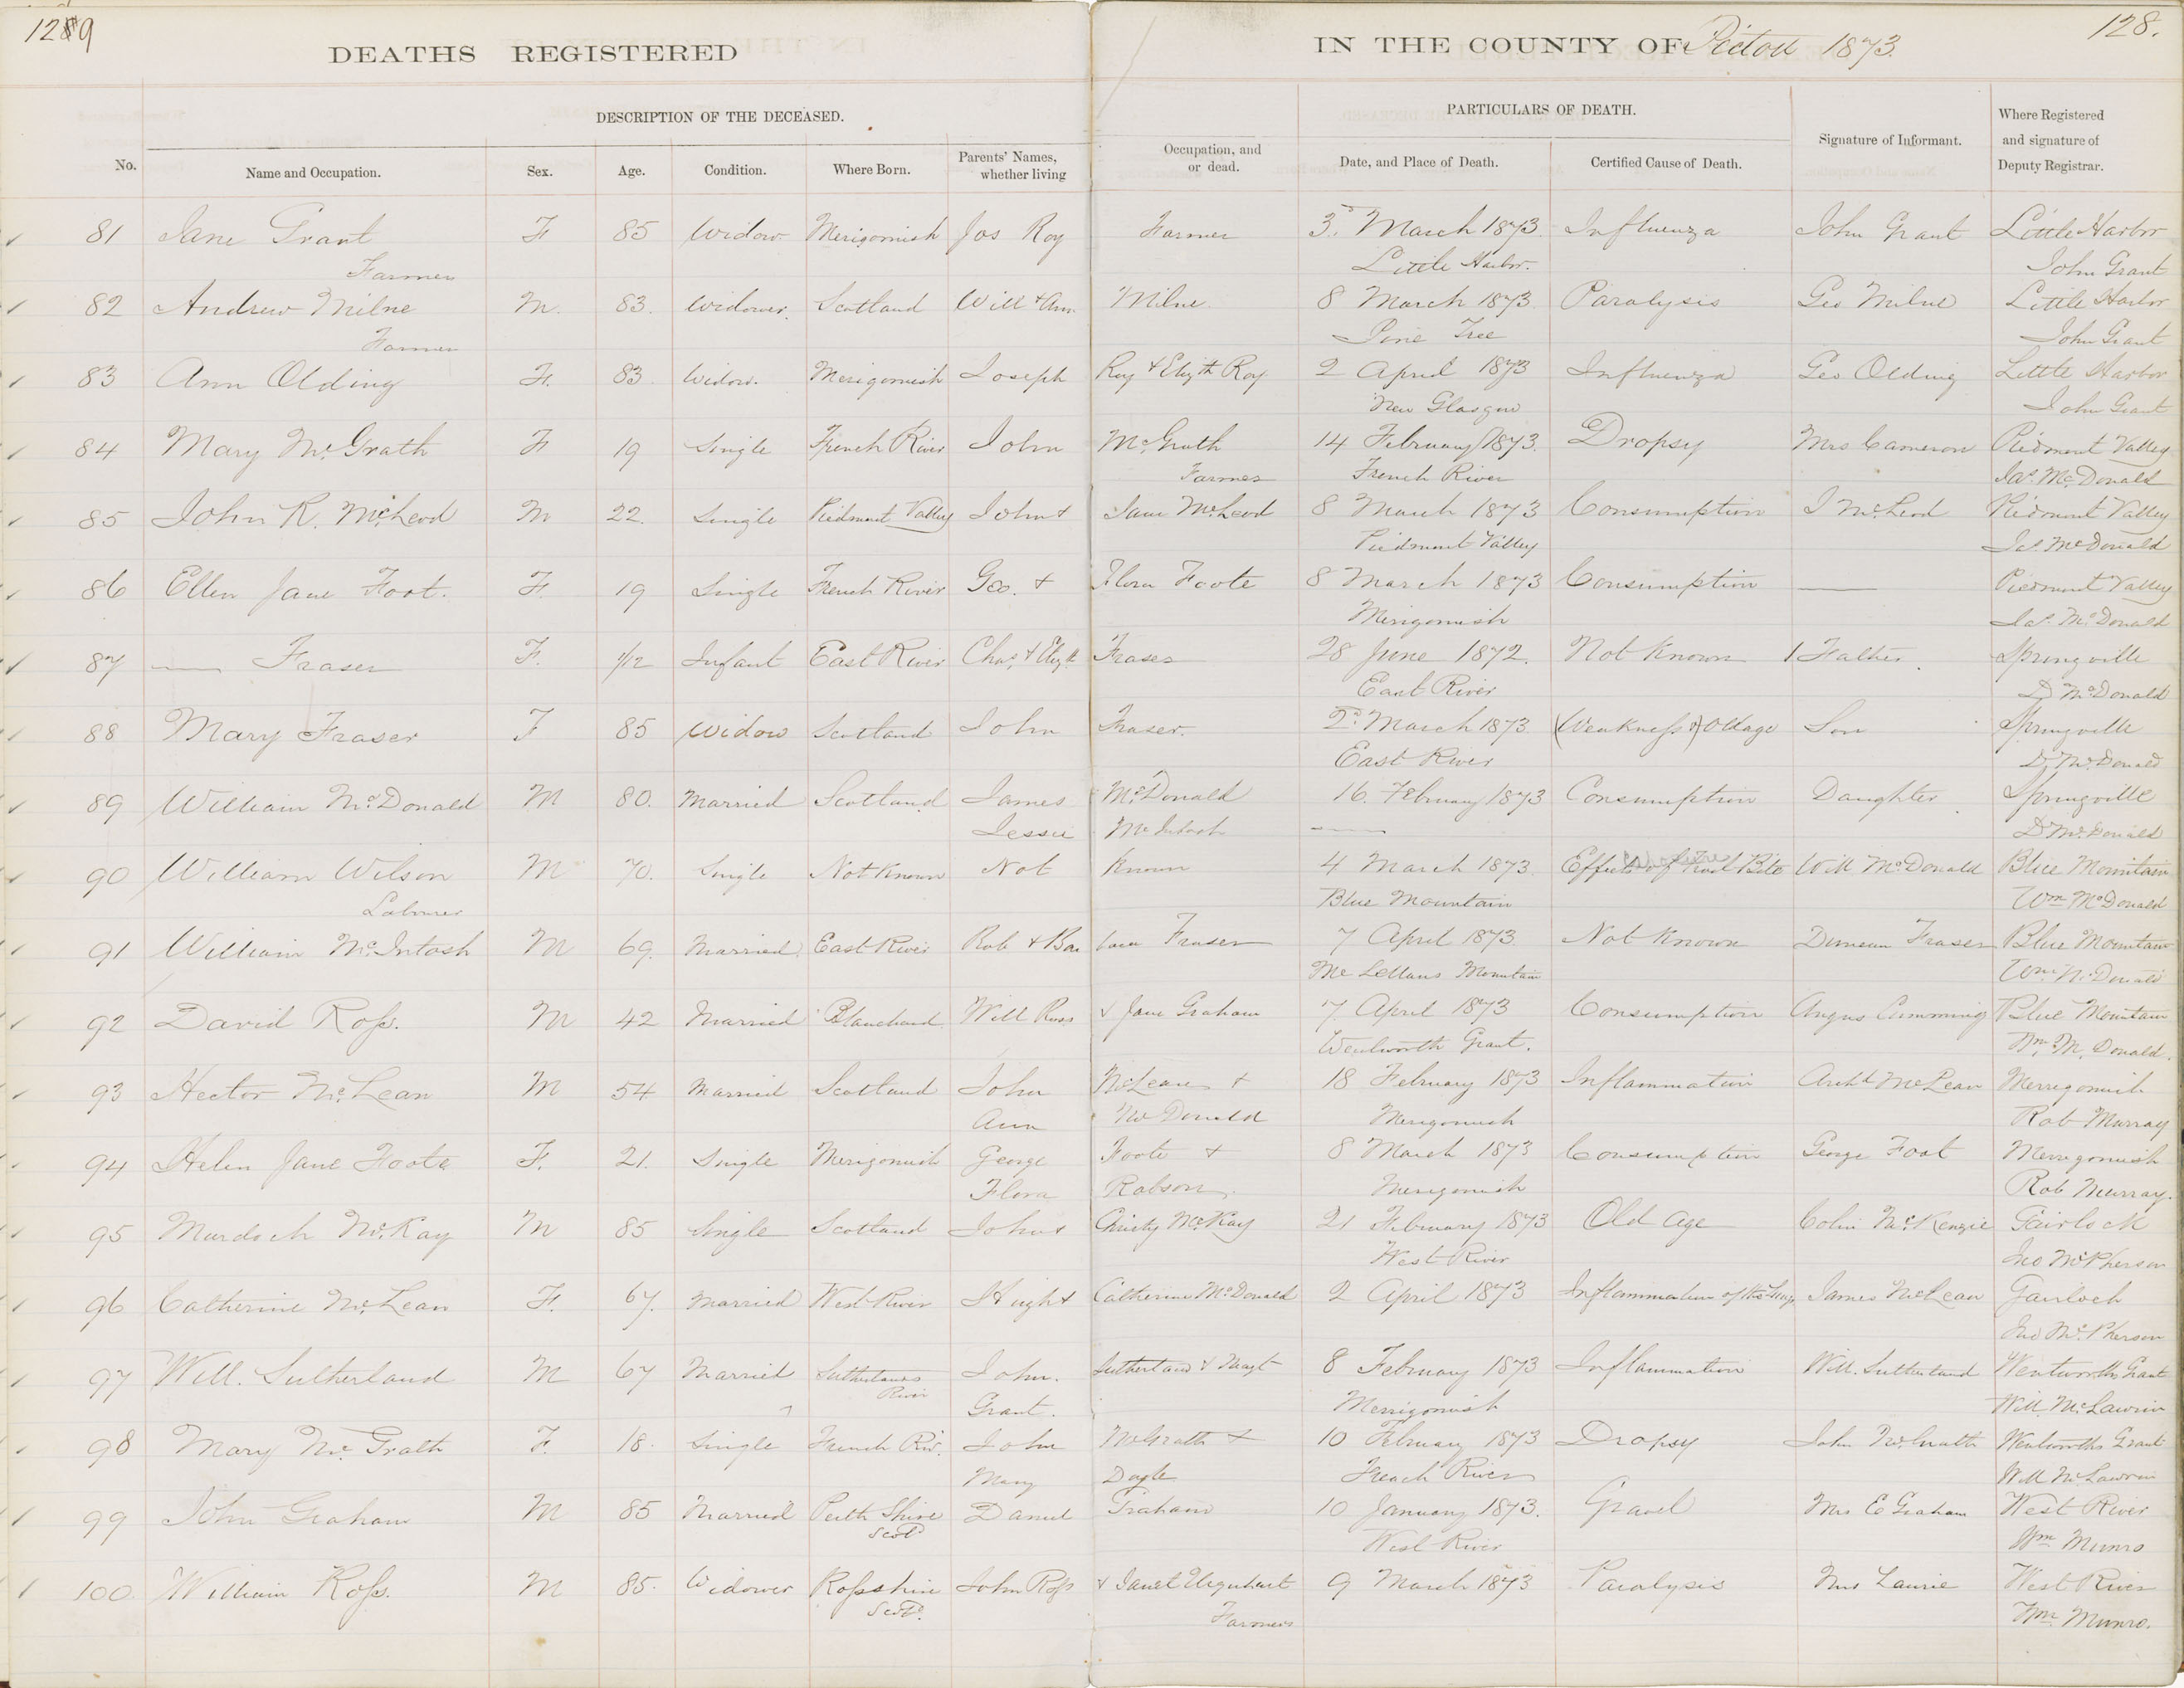 1289
128.
DEATHS REGISTERED IN THE COUNTY OF Pictou 1873.
DESCRIPTION OF THE DECEASED. PARTICULARS OF DEATH.
No. Name and Occupation. Sex. Age. Condition. Where Born. Parents' Names, whether living Occupation, and or dead. Date, and Place of Death. Certified Cause of Death. Signature of Informant. Where Registered and signature of Deputy Registrar.
81 Jane Grant F 85 Widow Merigomish Jos Roy Farmer 3d. March 1873. Influenza John Grant Little Harbor
Farmer Little Harbor. John Grant
82 Andrew Milne M. 83. Widower. Scotland Will & Ann Milne 8 March 1873. Paralysis Geo Milne Little Harbor
Farmer Pine Tree John Grant
83 Ann Olding F. 83. Widow. Merigomish Joseph Roy & Elizth Roy 2 April 1873 Influenza Geo Olding Little Harbor
New Glasgow John Grant
84 Mary McGrath F 19 Single French River John McGrath 14 February 1873. Dropsy Mrs Cameron Piedmont Valley
Farmer French River Jas. McDonald
85 John R. McLeod M 22. Single Piedmont Valley John & Jane McLeod 8 March 1873 Consumption J McLeod Piedmont Valley
Piedmont Valley Jas. McDonald
86 Ellen Jane Foot. F. 19 Single French River Geo. & Flora Foote 8 March 1873 Consumption — Piedmont Valley
Merigomish Jas. McDonald
87 — Fraser F. 1/12 Infant East River Chas. & Elizth Fraser 28 June 1872. Not Known Father. Springville
East River D McDonald
88 Mary Fraser F 85 Widow Scotland John Fraser. 2d. March 1873. (Weakness of) Old age Son Springville
East River D. McDonald
89 William McDonald M 80. Married Scotland James McDonald 16. February 1873 Consumption Daughter. Springville
Jessie McIntosh — D McDonald
90 William Wilson M 70. Single Not Known Not Known 4 March 1873. Effects of Bite Will McDonald Blue Mountain
Labourer Blue Mountain Wm McDonald
91 William McIntosh M 69. Married. East River Rob & Bar bara Fraser 7 April 1873. Not Known Duncan Fraser Blue Mountain
McLellans Mountain Wm McDonald
92 David Ross. M 42 Married Blanchard Will Ross & Jane Graham 7 April 1873 Consumption Angus Cumming Blue Mountain
Wentworth Grant. Wm. McDonald.
93 Hector McLean M 54 Married Scotland John McLean & 18 February 1873 Inflammation Archd McLean Merrigomish
Ann McDonald Merigomish Rob Murray
94 Helen Jane Foote F. 21. Single Merigomish George Foote & 8 March 1873 Consumption George Foot Merrigomish
Flora Robson. Merigomish Rob Murray.
95 Murdoch McKay M 85 Single Scotland John & Christy McKay 21 February 1873 Old Age Colin McKenzie Gairloch
West River Jno McPherson
96 Catherine McLean F. 67. Married West River Hugh & Catherine McDonald 2 April 1873 Inflammation of the Lungs James McLean Gairloch
Jno McPherson
97 Will. Sutherland M 67 Married Sutherlands John. Sutherland & Margt 8 February 1873 Inflammation Will. Sutherland Wentworths Grant
River Grant. Merrigomish Will. McLawrin
98 Mary McGrath F. 18. Single French Riv. John McGrath & 10 February 1873 Dropsy John McGrath Wentworths Grant
Mary Doyle French River Will McLawrin
99 John Graham M 85 Married Perth Shire Daniel Graham 10 January 1873. Gravel Mrs E Graham West River
Scotd West River Wm Munro
100. William Ross. M 85. Widower Rossshire John Ross & Janet Urquhart 9 March 1873 Paralysis Mrs Laurie West River
Scotd. Farmers Wm Munro.